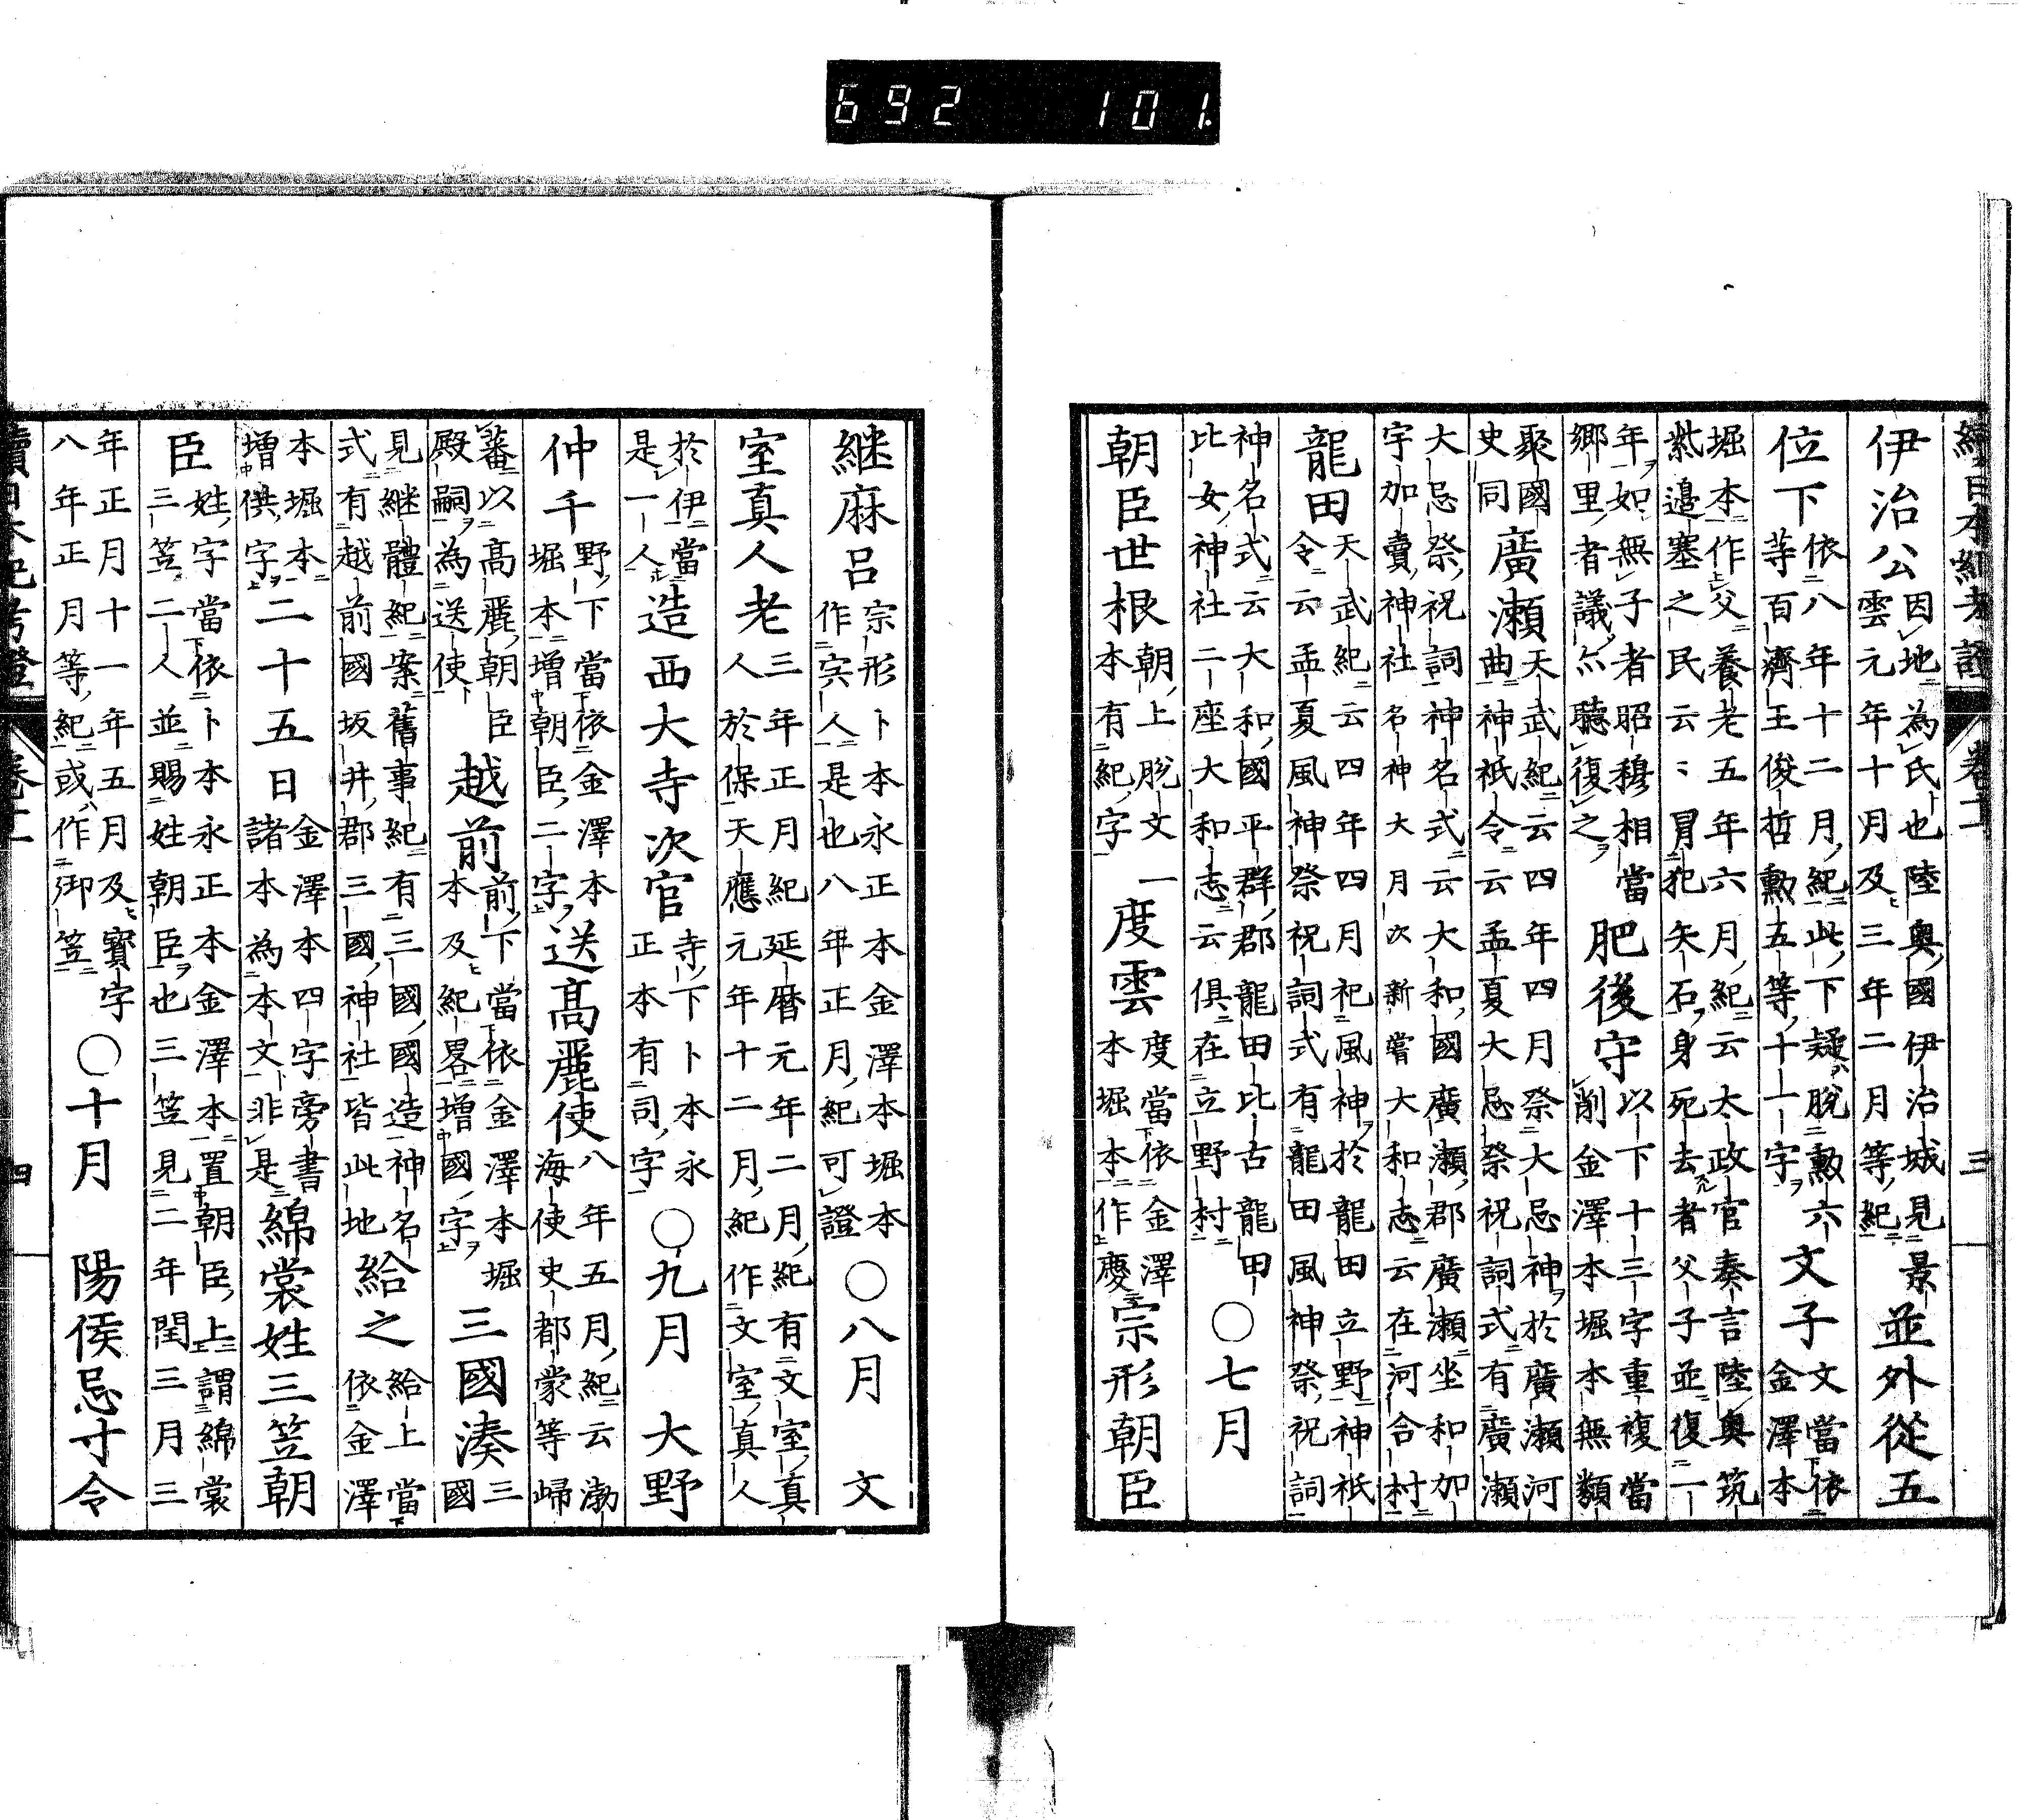 692 101.
伊治公因地為氏也陸奥國伊治城見景
雲元年十月及三年二月等紀並外從五
位下依八年十二月紀此下疑脱勲六
等百濟王俊哲勲五等十一字文子文當依
金澤本
堀本作父養老五年六月紀云太政官奏言陸奥筑
紫邉塞之民云々冐犯矢石身死去者父子並復一
年如無子者昭穆相當
郷里者議亦聽復之肥後守以下十三字重複當
削金澤本堀本無類
聚國
史同廣瀬天武紀云四年四月祭大忌神於廣瀬河
曲神祇令云孟夏大忌祭祝詞式有廣瀬
大忌祭祝詞神名式云大和國廣瀬郡廣瀬坐和加
宇加賣神社名神大月次新嘗大和志云在河合村
龍田天武紀云四年四月祀風神於龍田立野神祇
令云孟夏風神祭祝詞式有龍田風神祭祝詞
神名式云大和國平群郡龍田比古龍田
比女神社二座大和志云俱在立野村〇七月
朝臣世根朝上脱文一
本有紀字度雲度當依金澤
本堀本作慶宗形朝臣
継麻呂宗形卜本永正本金澤本堀本
作宍人是也八年正月紀可證〇八月 文
室真人老三年正月紀延暦元年二月紀有文室真
人於保天應元年十二月紀作文室真人
於伊當
是一人造西大寺次官寺下卜本永
正本有司字〇九月 大野
仲千野下當依金澤本
堀本増朝臣二字送髙麗使八年五月紀云渤
海使史都蒙等歸
蕃以髙麗朝臣
殿嗣為送使越前前下當依金澤本堀
本及紀畧増國字三國湊三
國
見継體紀案舊事紀有三國國造神名
式有越前國坂井郡三國神社皆此地給之給上當
依金澤
本堀本
増供字二十五日金澤本四字旁書
諸本為本文非是綿裳姓三笠朝
臣姓字當依卜本永正本金澤本置朝臣上謂綿裳
三笠二人並賜姓朝臣也三笠見二年閏三月三
年正月十一年五月及寶字
八年正月等紀或作御笠〇十月 陽侯忌寸令